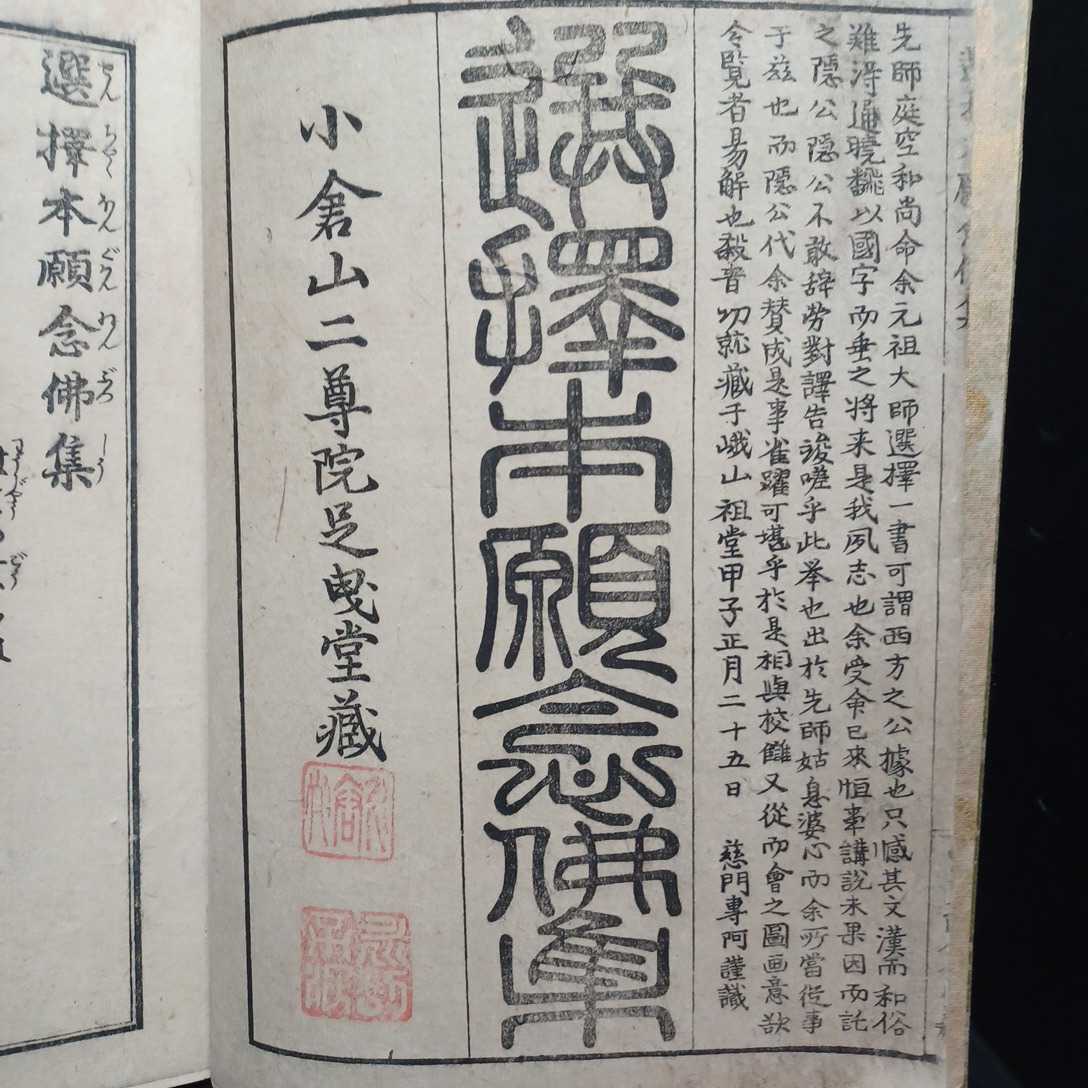 先師庭空和尚命余元祖大師選擇一書可謂西方之公據也只憾其文漢而和俗
難得通曉飜以國字而垂之将来是我夙志也余受命已來恒事講説未果因而託
之隠公隠公不敢辞労對譯告竣嗟乎此举也出於先師姑息婆心而余所當従事
于茲也而隠公代余賛成是事雀躍可堪乎於是相與校雠又從而會之圖画意欲
令覧者易解也殺青功就藏于峨山祖堂甲子正月二十五日 慈門專阿謹識
選擇本願念佛集
小倉山二尊院足曳堂藏
選擇本願念佛集
せんちやくほんぐわんねんぶつしう